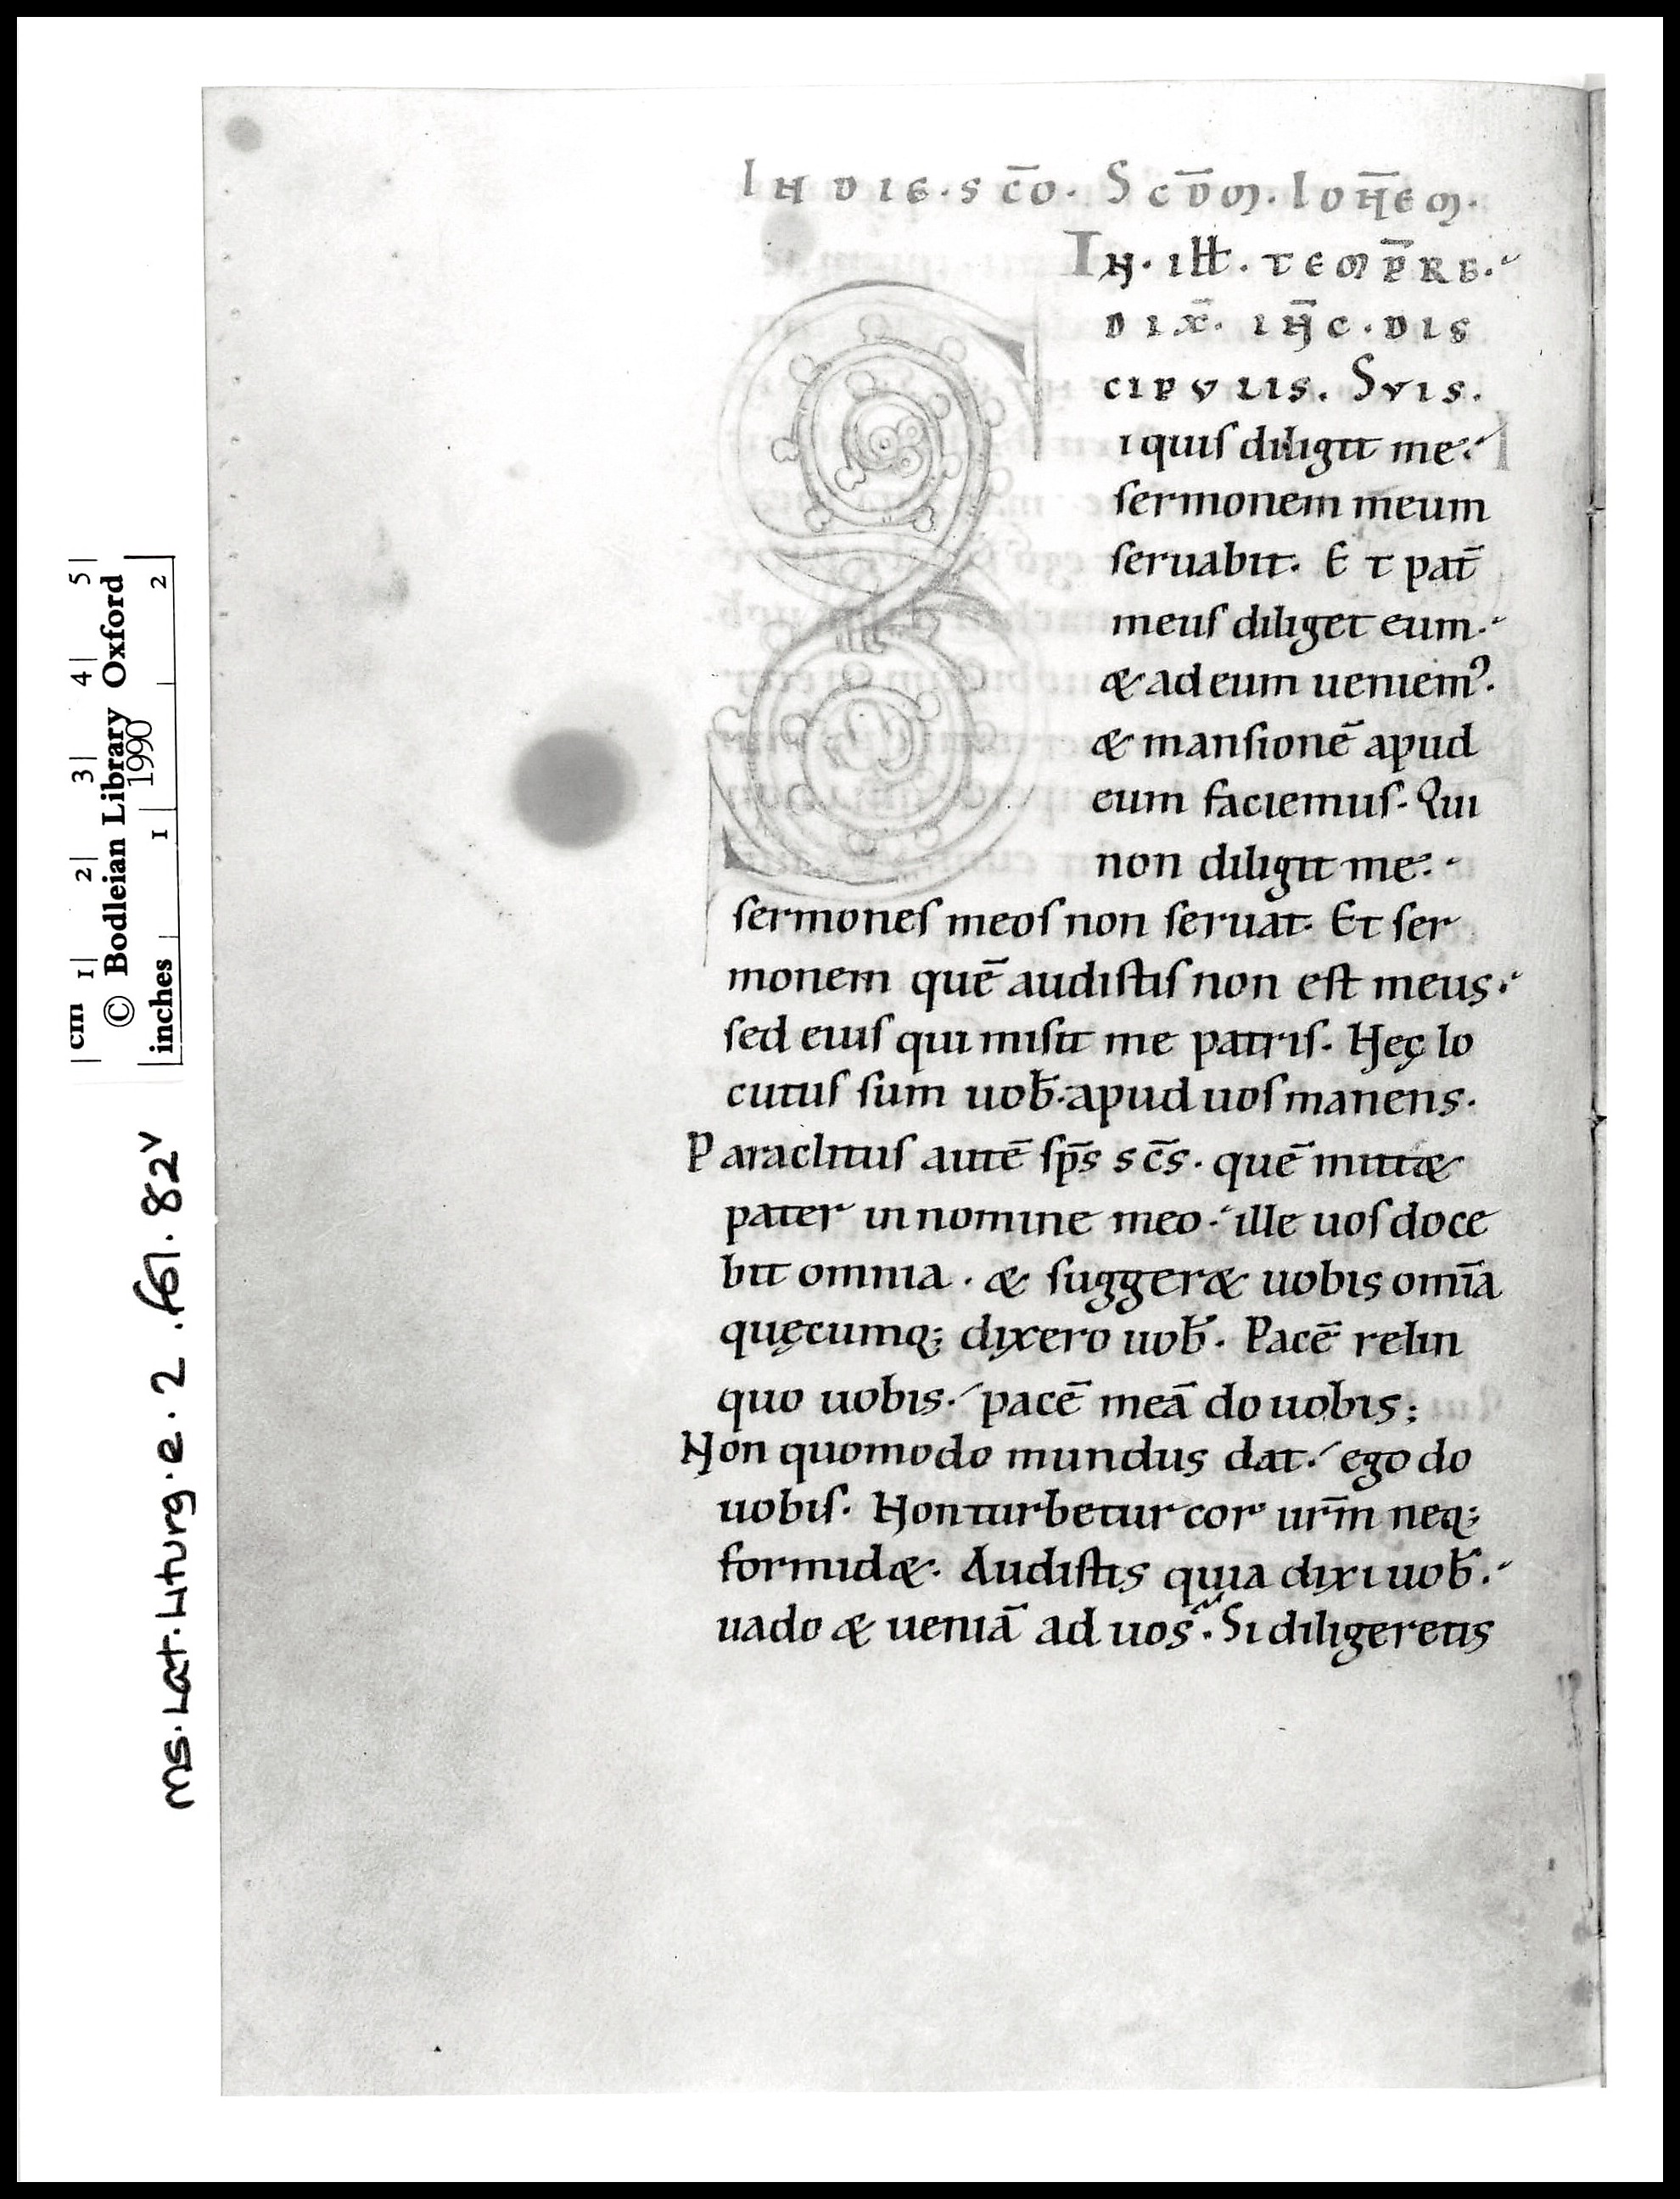 IN DIE · S C̄O · SCD̄M · IOH̄EM ·
IN · ILƗ · TEMP̄RE ·
DIX̄ · IH̄C · DIS
CIPVLIS · SVIS ·
S iquis diligit me ·
sermonem meum
seruabit · Et pat̄
meus diliget eum ·
& ad eum ueniem᾿ ·
& mansionē apud
eum faciemus · Qui
non diligit me ·
sermones meos non seruat · Et ser
monem quē audistis non est meus ·
sed eius qui misit me patris · Hęc lo
cutus sum uob̄ · apud uos manens ·
Paraclitus autē sp̄s sc̄s · quē mitt&
pater in nomine meo · ille uos doce
bit omnia · & sugger& uobis omīa
quęcumq; dixero uob̄ · Pacē relin
quo uobis · pacē meā do uobis ;
Non quomodo mundus dat · ego do
uobis · Non turbetur cor ur̄m neq;
formid& · Audistis quia dixi uob̄ ·
uado & ueniā ad uos · Si diligeretis
cm 1 2 3 4 5
© Bodleian Library Oxford
1990
inches 1 2
MS. Lat. Liturg. e. 2 . fol. 82v